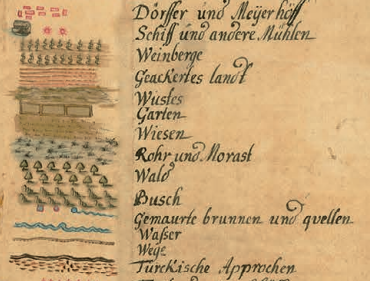 Dörffer und Meÿerhöff
Schiff und andere Mühlen
Weinberge
Geackertes landt
Wüstes
Garten
Wiesen
Rohr und Morast
Wald
Busch
Gemaurte brunnen und quellen
Waßer
Wege
Türckische Approchen